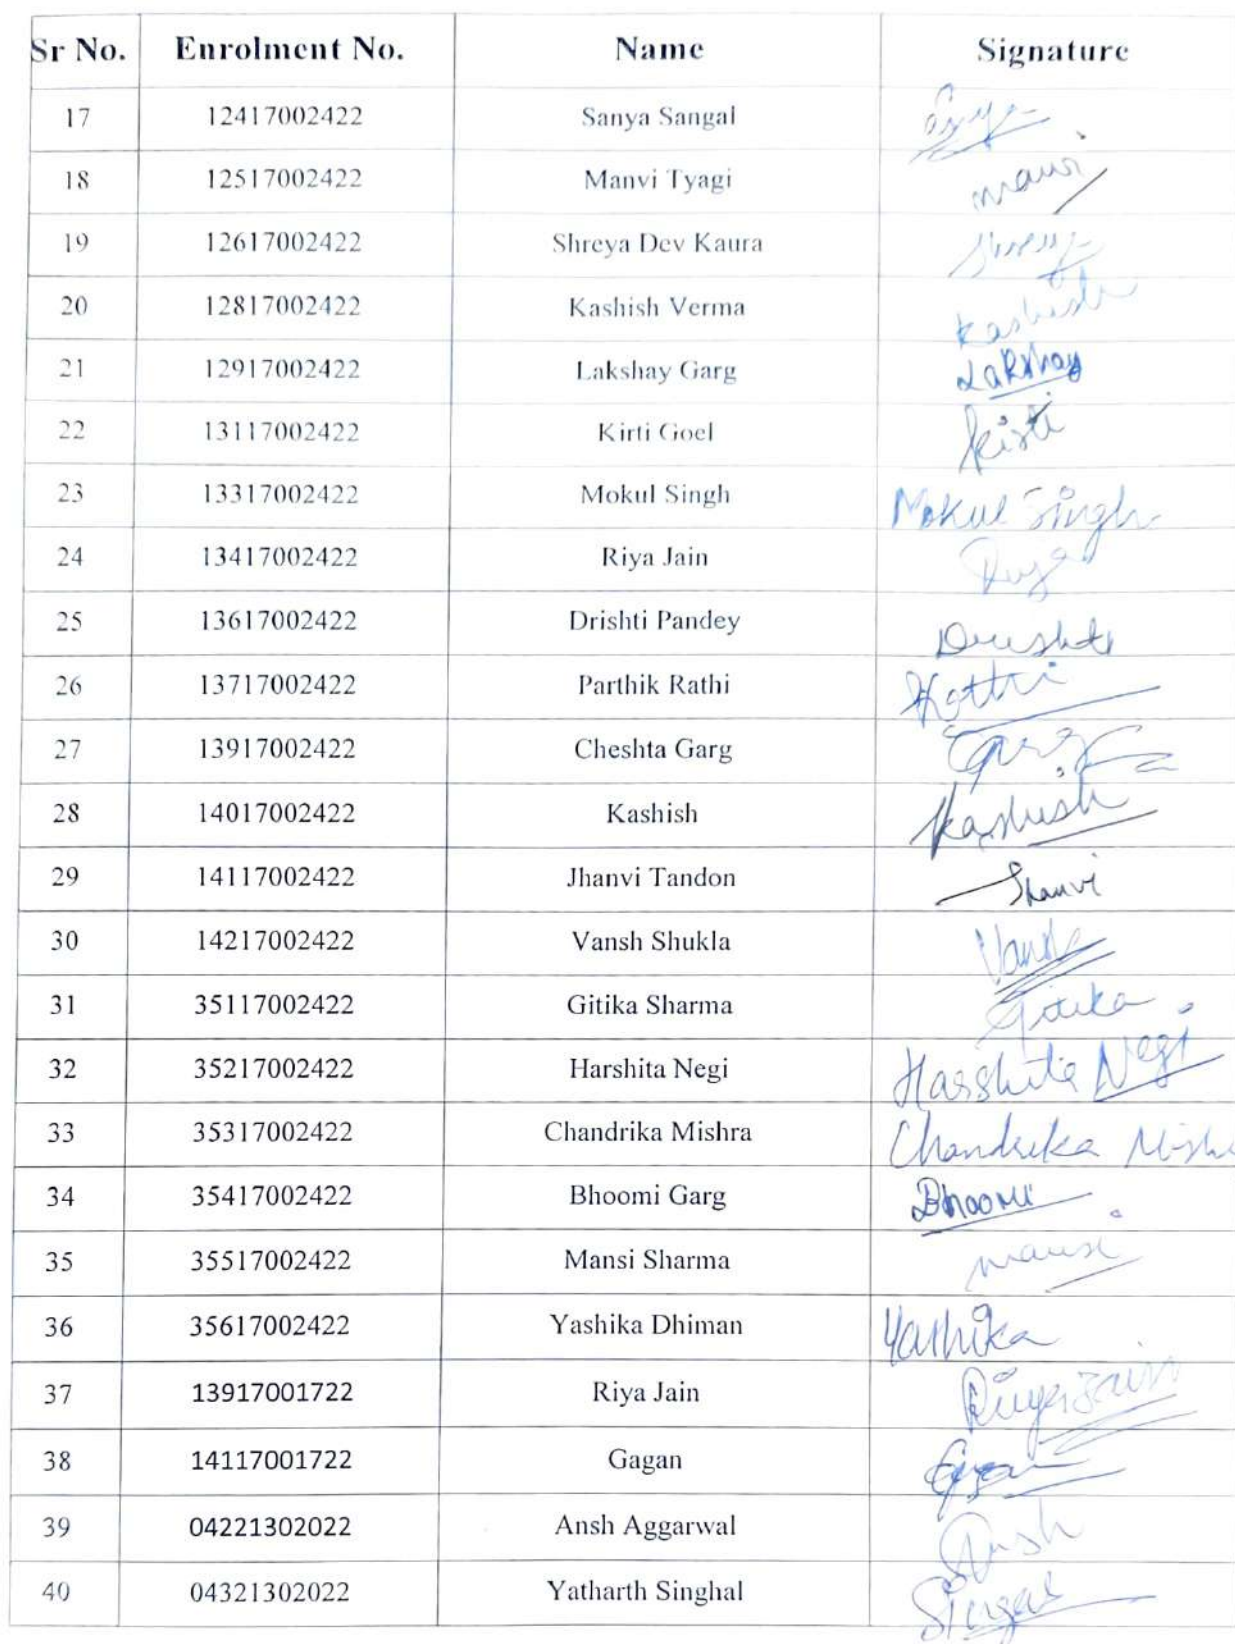 Sr No. Enrolment No. Name Signature
17 12417002422 Sanya Sangal
18 12517002422 Manvi Tyagi Manvi
19 12617002422 Shreya Dev Kaura Shreya
20 12817002422 Kashish Verma Kashish
21 12917002422 Lakshay Garg Lakshay
22 13117002422 Kirti Goel Kirti
23 13317002422 Mokul Singh Mokul Singh
24 13417002422 Riya Jain Riya
25 13617002422 Drishti Pandey Drishti
26 13717002422 Parthik Rathi
27 13917002422 Cheshta Garg Garg
28 14017002422 Kashish Kashish
29 14117002422 Jhanvi Tandon Jhanvi
30 14217002422 Vansh Shukla Vansh
31 35117002422 Gitika Sharma Gitika
32 35217002422 Harshita Negi Harshita Negi
33 35317002422 Chandrika Mishra Chandrika
34 35417002422 Bhoomi Garg Bhoomi
35 35517002422 Mansi Sharma Mansi
36 35617002422 Yashika Dhiman Yashika
37 13917001722 Riya Jain Riya Jain
38 14117001722 Gagan
39 04221302022 Ansh Aggarwal Ansh
40 04321302022 Yatharth Singhal